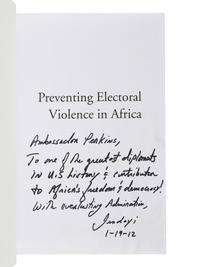 Preventing Electoral
Violence in Africa
Ambassador Perkins,
To one of the greatest diplomats
in U.S history & contributor
to Africa's freedom & democracy!
With everlasting Admiration,
1-19-12